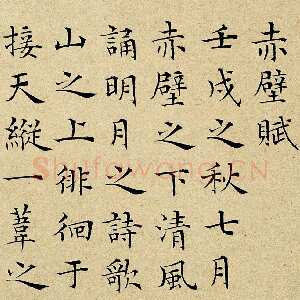 赤壁賦
壬戌之秋七月
赤壁之下清風
誦明月之詩歌
山之上徘徊于
接天縱一葦之